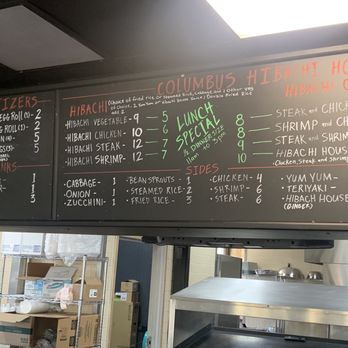 COLUMBUS HIBACHI HO
TIZERS
EGG ROLL (1) - 2
EGG ROLL (3) - 5
2
2
5
NKS
1
1
3
HIBACHI (Choice of fried rice or steamed rice, cabbage and 1 other veg
of choice. 2 Yum Yum or Hibachi House Sauce) Double Fried Rice
add 2
HIBACHI VEGETABLE - 9 - 5
HIBACHI CHICKEN - 10 - 6
HIBACHI STEAK - 12 - 7
HIBACHI SHRIMP - 12 - 7
LUNCH
SPECIAL
1/2 DINNER SIZE
11am to 3pm
HIBACHI C
8 STEAK and CHIC
8 SHRIMP and CHI
9 STEAK and SHRI
10 HIBACHI HOUS
(Chicken, Steak and Shrimp)
SIDES
- CABBAGE - 1
ONION - 1
ZUCCHINI - 1
- BEAN SPROUTS - 1
- STEAMED RICE - 2
- FRIED RICE - 3
- CHICKEN - 4
- SHRIMP - 6
- STEAK - 6
- YUM YUM -
- TERIYAKI -
- HIBACH HOUSE
(GINGER)